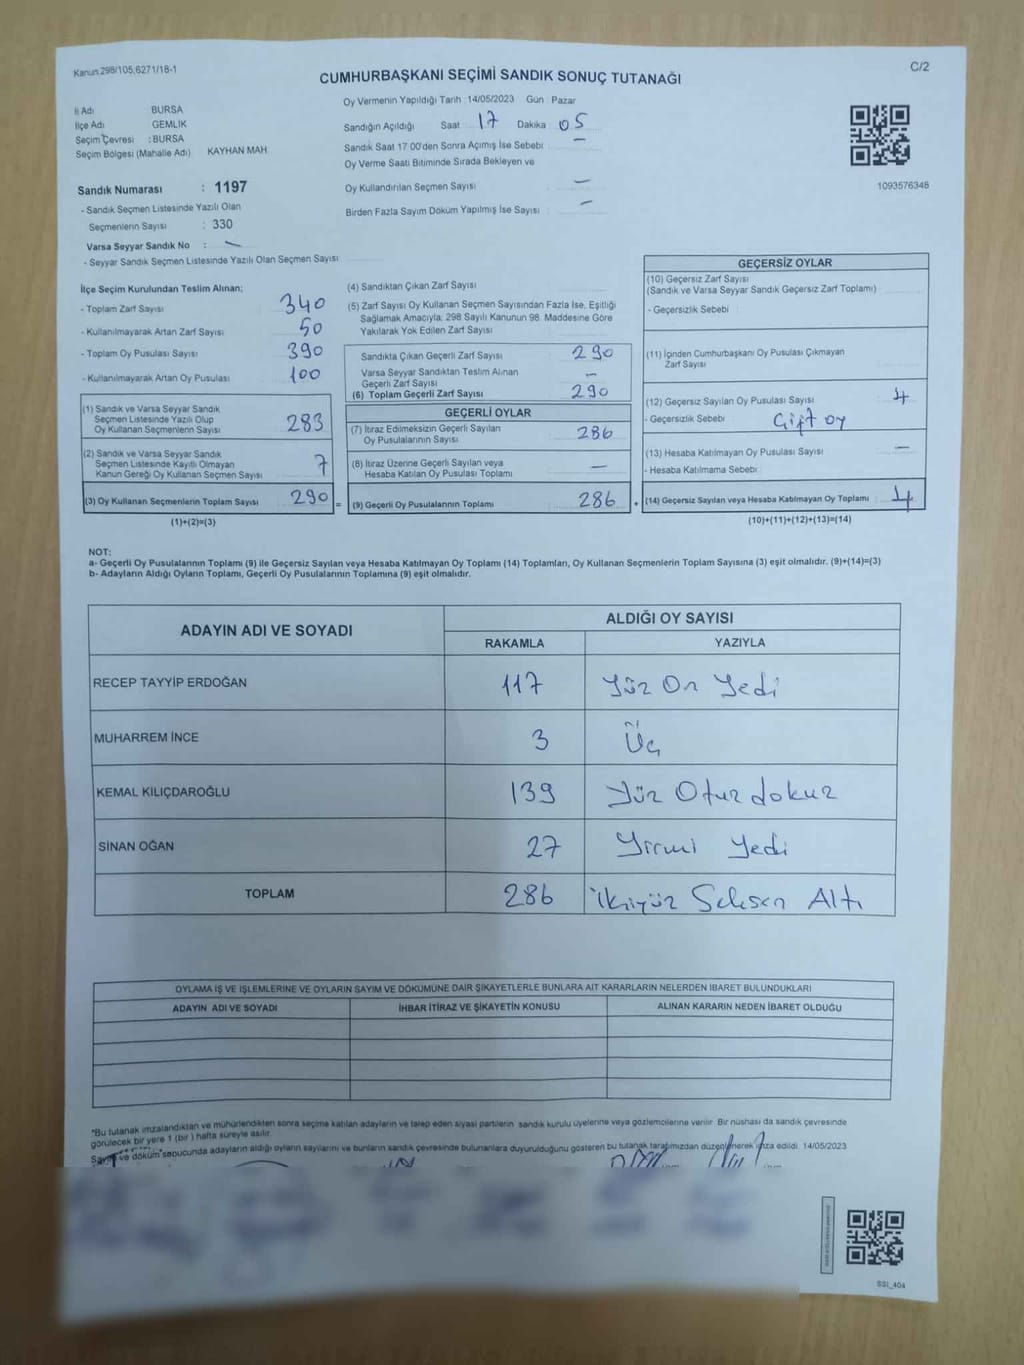 Kanun:298/105;6271/18-1
C/2
CUMHURBAŞKANI SEÇİMİ SANDIK SONUÇ TUTANAĞI
İl Adı : BURSA
İlçe Adı : GEMLİK
Seçim Çevresi : BURSA
Seçim Bölgesi (Mahalle Adı) KAYHAN MAH.
Sandık Numarası : 1197
- Sandık Seçmen Listesinde Yazılı Olan
Seçmenlerin Sayısı : 330
Varsa Seyyar Sandık No : —
- Seyyar Sandık Seçmen Listesinde Yazılı Olan Seçmen Sayısı
Oy Vermenin Yapıldığı Tarih :14/05/2023 Gün : Pazar
Sandığın Açıldığı Saat 17 Dakika 05
Sandık Saat 17:00'den Sonra Açımış İse Sebebi : —
Oy Verme Saati Bitiminde Sırada Bekleyen ve
Oy Kullandırılan Seçmen Sayısı : —
Birden Fazla Sayım Döküm Yapılmış İse Sayısı : —
1093576348
İlçe Seçim Kurulundan Teslim Alınan;
- Toplam Zarf Sayısı 340
- Kullanılmayarak Artan Zarf Sayısı 50
- Toplam Oy Pusulası Sayısı 390
- Kullanılmayarak Artan Oy Pusulası 100
(1) Sandık ve Varsa Seyyar Sandık
Seçmen Listesinde Yazılı Olup
Oy Kullanan Seçmenlerin Sayısı 283
(2) Sandık ve Varsa Seyyar Sandık
Seçmen Listesinde Kayıtlı Olmayan
Kanun Gereği Oy Kullanan Seçmen Sayısı 7
(3) Oy Kullanan Seçmenlerin Toplam Sayısı 290 =
(1)+(2)=(3)
(4) Sandıktan Çıkan Zarf Sayısı
(5) Zarf Sayısı Oy Kullanan Seçmen Sayısından Fazla İse, Eşitliği
Sağlamak Amacıyla, 298 Sayılı Kanunun 98. Maddesine Göre
Yakılarak Yok Edilen Zarf Sayısı
Sandıkta Çıkan Geçerli Zarf Sayısı 290
Varsa Seyyar Sandıktan Teslim Alınan
Geçerli Zarf Sayısı —
(6) Toplam Geçerli Zarf Sayısı 290
GEÇERLİ OYLAR
(7) İtiraz Edilmeksizin Geçerli Sayılan
Oy Pusulalarının Sayısı 286
(8) İtiraz Üzerine Geçerli Sayılan veya
Hesaba Katılan Oy Pusulası Toplamı —
(9) Geçerli Oy Pusulalarının Toplamı 286 +
GEÇERSİZ OYLAR
(10) Geçersiz Zarf Sayısı
(Sandık ve Varsa Seyyar Sandık Geçersiz Zarf Toplamı)
- Geçersizlik Sebebi
(11) İçinden Cumhurbaşkanı Oy Pusulası Çıkmayan
Zarf Sayısı
(12) Geçersiz Sayılan Oy Pusulası Sayısı 4
- Geçersizlik Sebebi Çift oy
(13) Hesaba Katılmayan Oy Pusulası Sayısı —
- Hesaba Katılmama Sebebi
(14) Geçersiz Sayılan veya Hesaba Katılmayan Oy Toplamı 4
(10)+(11)+(12)+(13)=(14)
NOT:
a- Geçerli Oy Pusulalarının Toplamı (9) ile Geçersiz Sayılan veya Hesaba Katılmayan Oy Toplamı (14) Toplamları, Oy Kullanan Seçmenlerin Toplam Sayısına (3) eşit olmalıdır. (9)+(14)=(3)
b- Adayların Aldığı Oyların Toplamı, Geçerli Oy Pusulalarının Toplamına (9) eşit olmalıdır.
ADAYIN ADI VE SOYADI
ALDIĞI OY SAYISI
RAKAMLA YAZIYLA
RECEP TAYYİP ERDOĞAN 117 Yüz On Yedi
MUHARREM İNCE 3 Üç
KEMAL KILIÇDAROĞLU 139 Yüz Otuz dokuz
SİNAN OĞAN 27 Yirmi Yedi
TOPLAM 286 İkiyüz Seksen Altı
OYLAMA İŞ VE İŞLEMLERİNE VE OYLARIN SAYIM VE DÖKÜMÜNE DAİR ŞİKAYETLERLE BUNLARA AİT KARARLARIN NELERDEN İBARET BULUNDUKLARI
ADAYIN ADI VE SOYADI İHBAR İTİRAZ VE ŞİKAYETİN KONUSU ALINAN KARARIN NEDEN İBARET OLDUĞU
*Bu tutanak imzalandıktan ve mühürlendikten sonra seçime katılan adayların ve talep eden siyasi partilerin sandık kurulu üyelerine veya gözlemcilerine verilir. Bir nüshası da sandık çevresinde
görülecek bir yere 1 (bir ) hafta süreyle asılır.
Sayım ve döküm sonucunda adayların aldığı oyların sayılarını ve bunların sandık çevresinde bulunanlara duyurulduğunu gösteren bu tutanak tarafımızdan düzenlenerek imza edildi. 14/05/2023
SSI_404